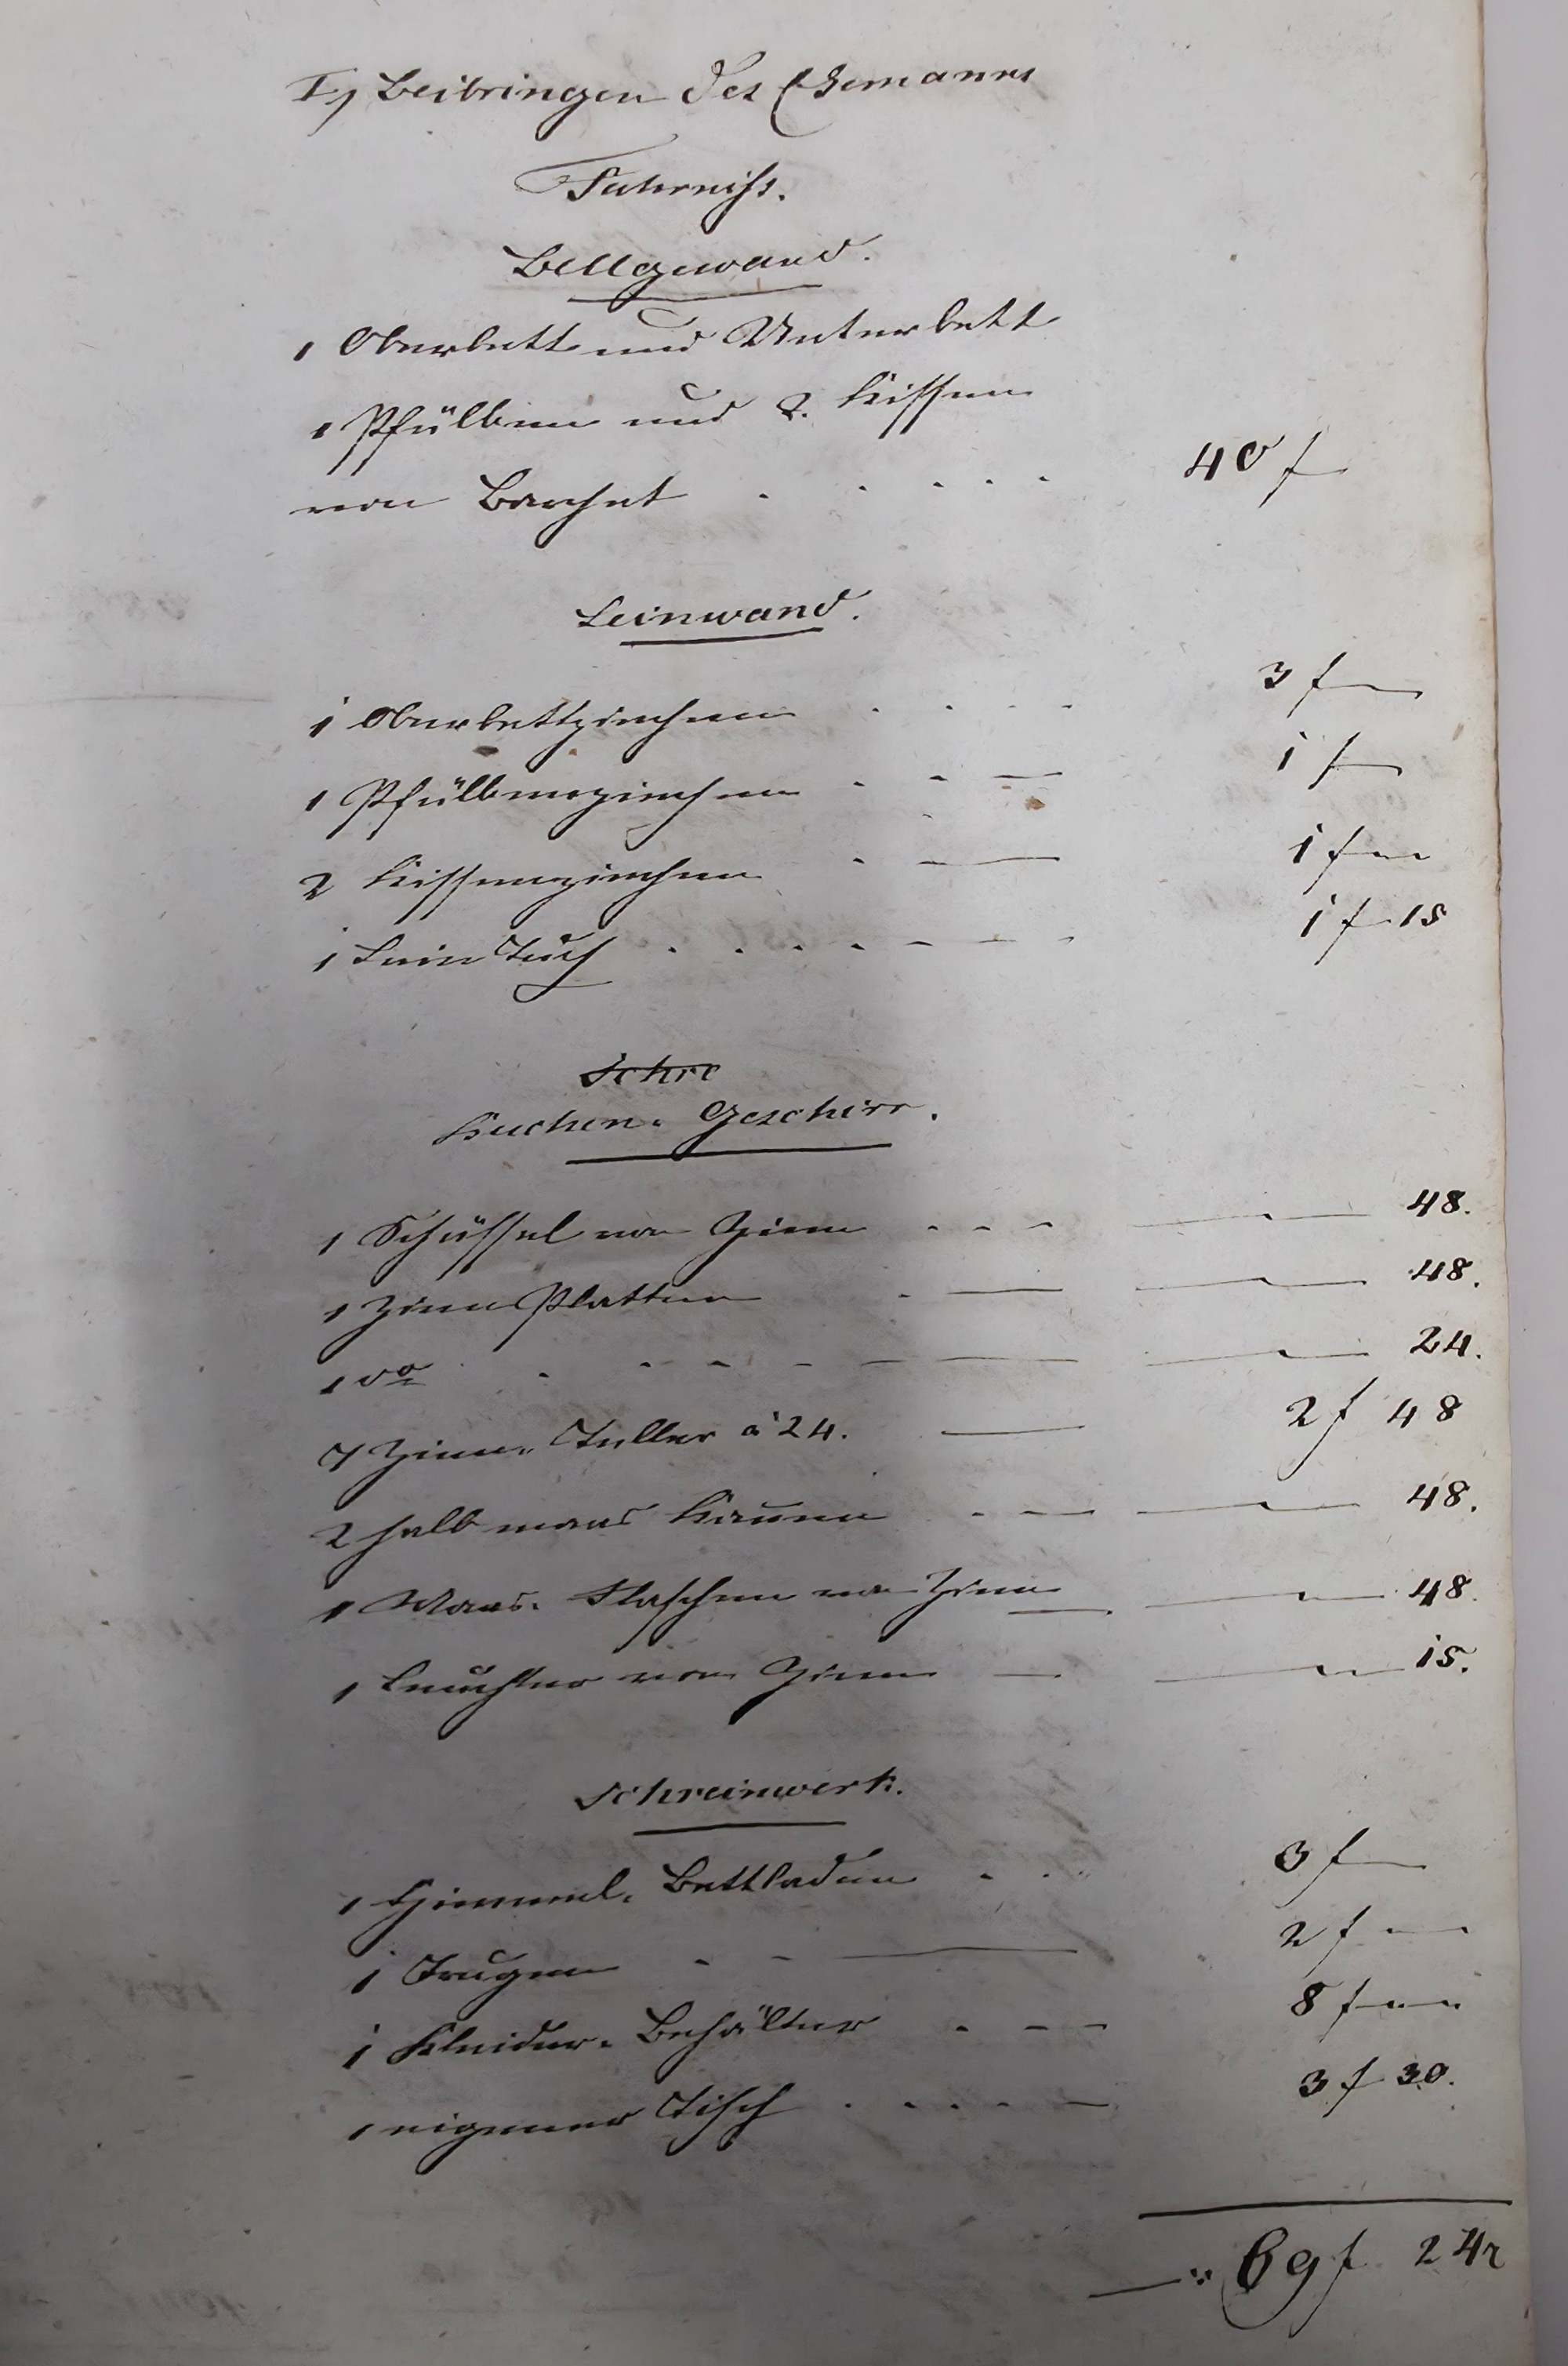 I, Beibringen des Ehemanns
Fahrniß.
Bettgewand.
1 Oberbett und Unterbett
1 Pfülben und 2. Kissen
von Barchet . . . . . . 40 f
Leinwand.
1 Oberbettziechen . . . . 3 f —
1 Pfülbenziechen . . — 1 f —
2 Kissenziechen . — 1 f —
1 Lein Tuch . . . . . . . 1 f 15
Schre
Kuchen. Geschirr.
1 Schüssel von Zinn . . . — 48.
1 Zinn Platten . — — 48.
1 do . . . . — — 24.
7 Zinn. Teller à 24. — 2 f 48
2 halb maas Kannen . . . — 48.
1 Maas. Flaschen von Zinn — — 48.
1 Leuchter von Zinn — — 15.
Schreinwerk.
1 Himmel. Bettladen . . 3 f —
1 Trugen . . — 2 f —
1 Kleider. Behälter . . . 8 f —
1 eigener Tisch . . . . . 3 f 30.
69 f 24r